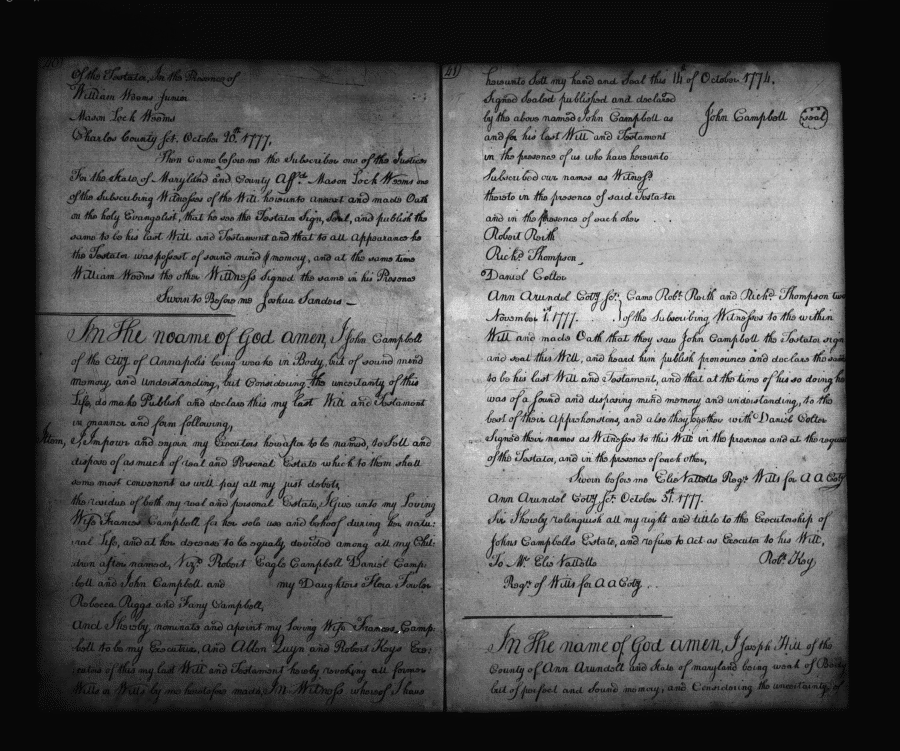 of the Testator, In the Presence of
William Weems Junior
Mason Lock Weems
Charles County Sct. October 20th 1777.
Then Came before me the Subscriber one of the Justices
For the State of Maryland and County Affd. Mason Lock Weems one
of the subscribing Witnesses of the Will hereunto annext and made Oath
on the holy Evangelist, that he see the Testator Sign, Seal, and publish the
same to be his last Will and Testament and that to all Appearance he
the Testator was possest of sound mind & memory, and at the same time
William Weems the other Wittness signed the same in his Presence
Sworn to Before me Joshua Sanders —
In The name of God amen, I John Campbell
of the City of Annapolis being weake in Body, but of sound mind
memory, and understanding, but Considering the uncertainty of this
Life, do make Publish and declare this my last Will and Testament
in manner and form following,
Item, I Impower and enjoin my Executors hereafter to be named, to Sell and
dispose of as much of real and Personal Estate which to them shall
seem most convenant as will pay all my just debts,
the residue of both my real and personal Estate, I give unto my Loving
Wife Frances Campbell for her sole use and behoof during her natu:
:ral Life, and at her decease to be equaly devided among all my Chil:
:dren after named, Vizt. Robert Eagle Campbell Daniel Camp:
:bell and John Campbell and my Daughters Flora
Rebecca Riggs and Fany Campbell,
And I hereby, nominate and apoint my Loving Wife Frances Camp:
:bell to be my Executrix, And Allen Quyn and Robert Keys Exe:
:cutors of this my last Will and Testament hereby revoking all former
Wills or Wills by me heretofore made, In Witness whereof I have
41)
hereunto sett my hand and Seal this 14th of October 1774.
Signed Sealed published and declared
by the above named John Campbell as John Campbell (seal)
and for his last Will and Testament
in the presence of us who have hereunto
Subscribed our names as Witness
thereto in the presence of said Testater
and in the presence of each other . .
Robert Reith
Richd. Thompson
Daniel Colter
Ann Arundel Coty Sct. Came Robt. Reith and Richd. Thompson two
November 1st 1777. of the Subscribing Witnesses to the within
Will and made Oath that they saw John Campbell the Testator sign
and seal this Will, and heard him publish pronounce and declare the same
to be his last Will and Testament, and that at the time of his so doing he
was of a sound and disposing mind memory and understanding, to the
best of their Apprehensions, and also they together with Daniel Colter
Signed their names as Witnesses to this Will in the presence and at the request
of the Testator, and in the presence of each other,
Sworn before me Elie Vallette Regr. Wills for AA Coty
Ann Arundel Coty Sct. October 31st 1777.
Sir I hereby relinquish all my right and title to the Executorship of
Johns Campbells Estate, and refuse to act as Executor to his Will,
To Mr. Elie Vallette Robt. Key
Regr. of Wills for AA Coty . .
In The name of God amen, I Joseph Hill of the
County of Ann Arundell and State of maryland being weak of Body
but of perfect and Sound memory, and Considering the uncertainty of